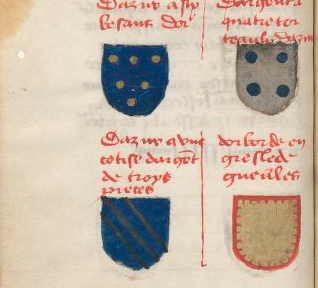 Dazur a six
besans dor
Dargent a
quatre tor
teaulx dazur
Dazur a une
cotise dargẽt
de troys
pieces
dor borde en
gresle de
gueulles